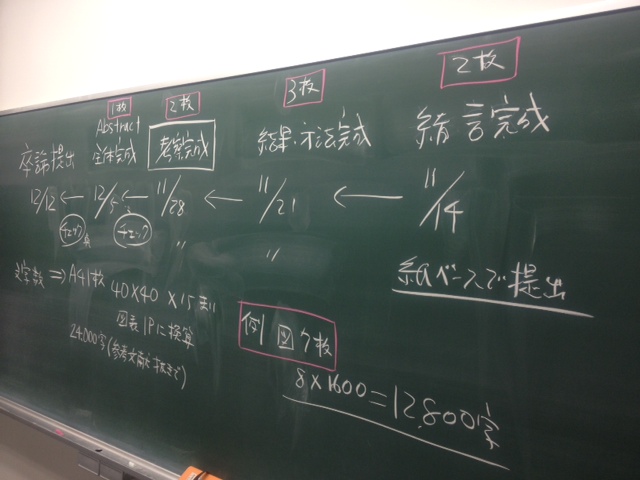 1枚 2枚 3枚 2枚
Abstract
卒論提出 全体完成 考察完成 結果・方法完成 緒言完成
12/12 ← 12/5 ← 11/28 ← 11/21 ← 11/14
チェック チェック 〃 〃
文字数 ⇒ A4 1枚 40×40 ×15まい
図表1Pに換算
24,000字(参考文献は抜きで)
紙ベースで提出
例 図7枚
8×1600=12,800字